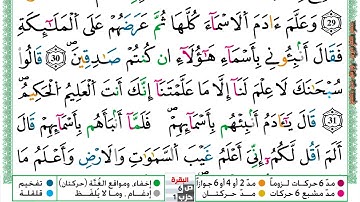 (29) وَعَلَّمَ ءَادَمَ ٱلۡأَسۡمَآءَ كُلَّهَا ثُمَّ عَرَضَهُمۡ عَلَى ٱلۡمَلَٰٓئِكَةِ
فَقَالَ أَنۢبِـُٔونِي بِأَسۡمَآءِ هَٰٓؤُلَآءِ إِن كُنتُمۡ صَٰدِقِينَ (30) قَالُواْ
سُبۡحَٰنَكَ لَا عِلۡمَ لَنَآ إِلَّا مَا عَلَّمۡتَنَآ إِنَّكَ أَنتَ ٱلۡعَلِيمُ ٱلۡحَكِيمُ
(31) قَالَ يَٰٓـَٔادَمُ أَنۢبِئۡهُم بِأَسۡمَآئِهِمۡ فَلَمَّآ أَنۢبَأَهُم بِأَسۡمَآئِهِمۡ قَالَ
أَلَمۡ أَقُل لَّكُمۡ إِنِّيٓ أَعۡلَمُ غَيۡبَ ٱلسَّمَٰوَٰتِ وَٱلۡأَرۡضِ وَأَعۡلَمُ مَا
البقرة
مدّ 6 حركات لزوماً مدّ 2 أو 4 أو 6 جوازاً
مدّ مشبع 6 حركات مدّ حركتان
إخفاء، ومواقع الغُنَّة (حركتان) تفخيم
إدغام، وما لا يُلفَظ قلقلة